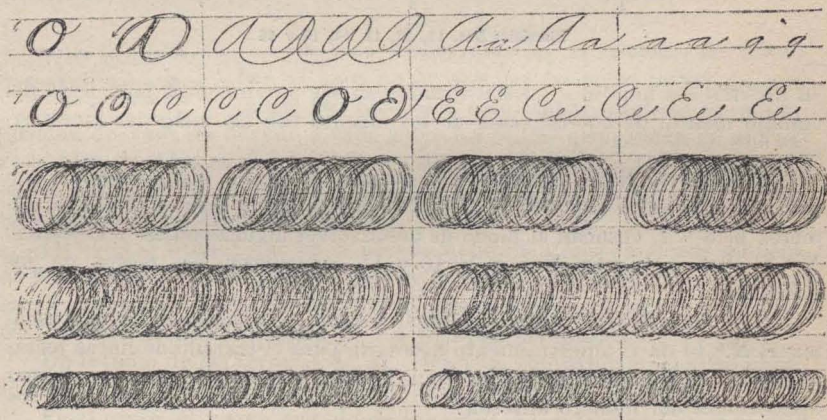 O A A A A A Aa Aa a a q q
O O C C C O E E E Ce Ce Ee Ee